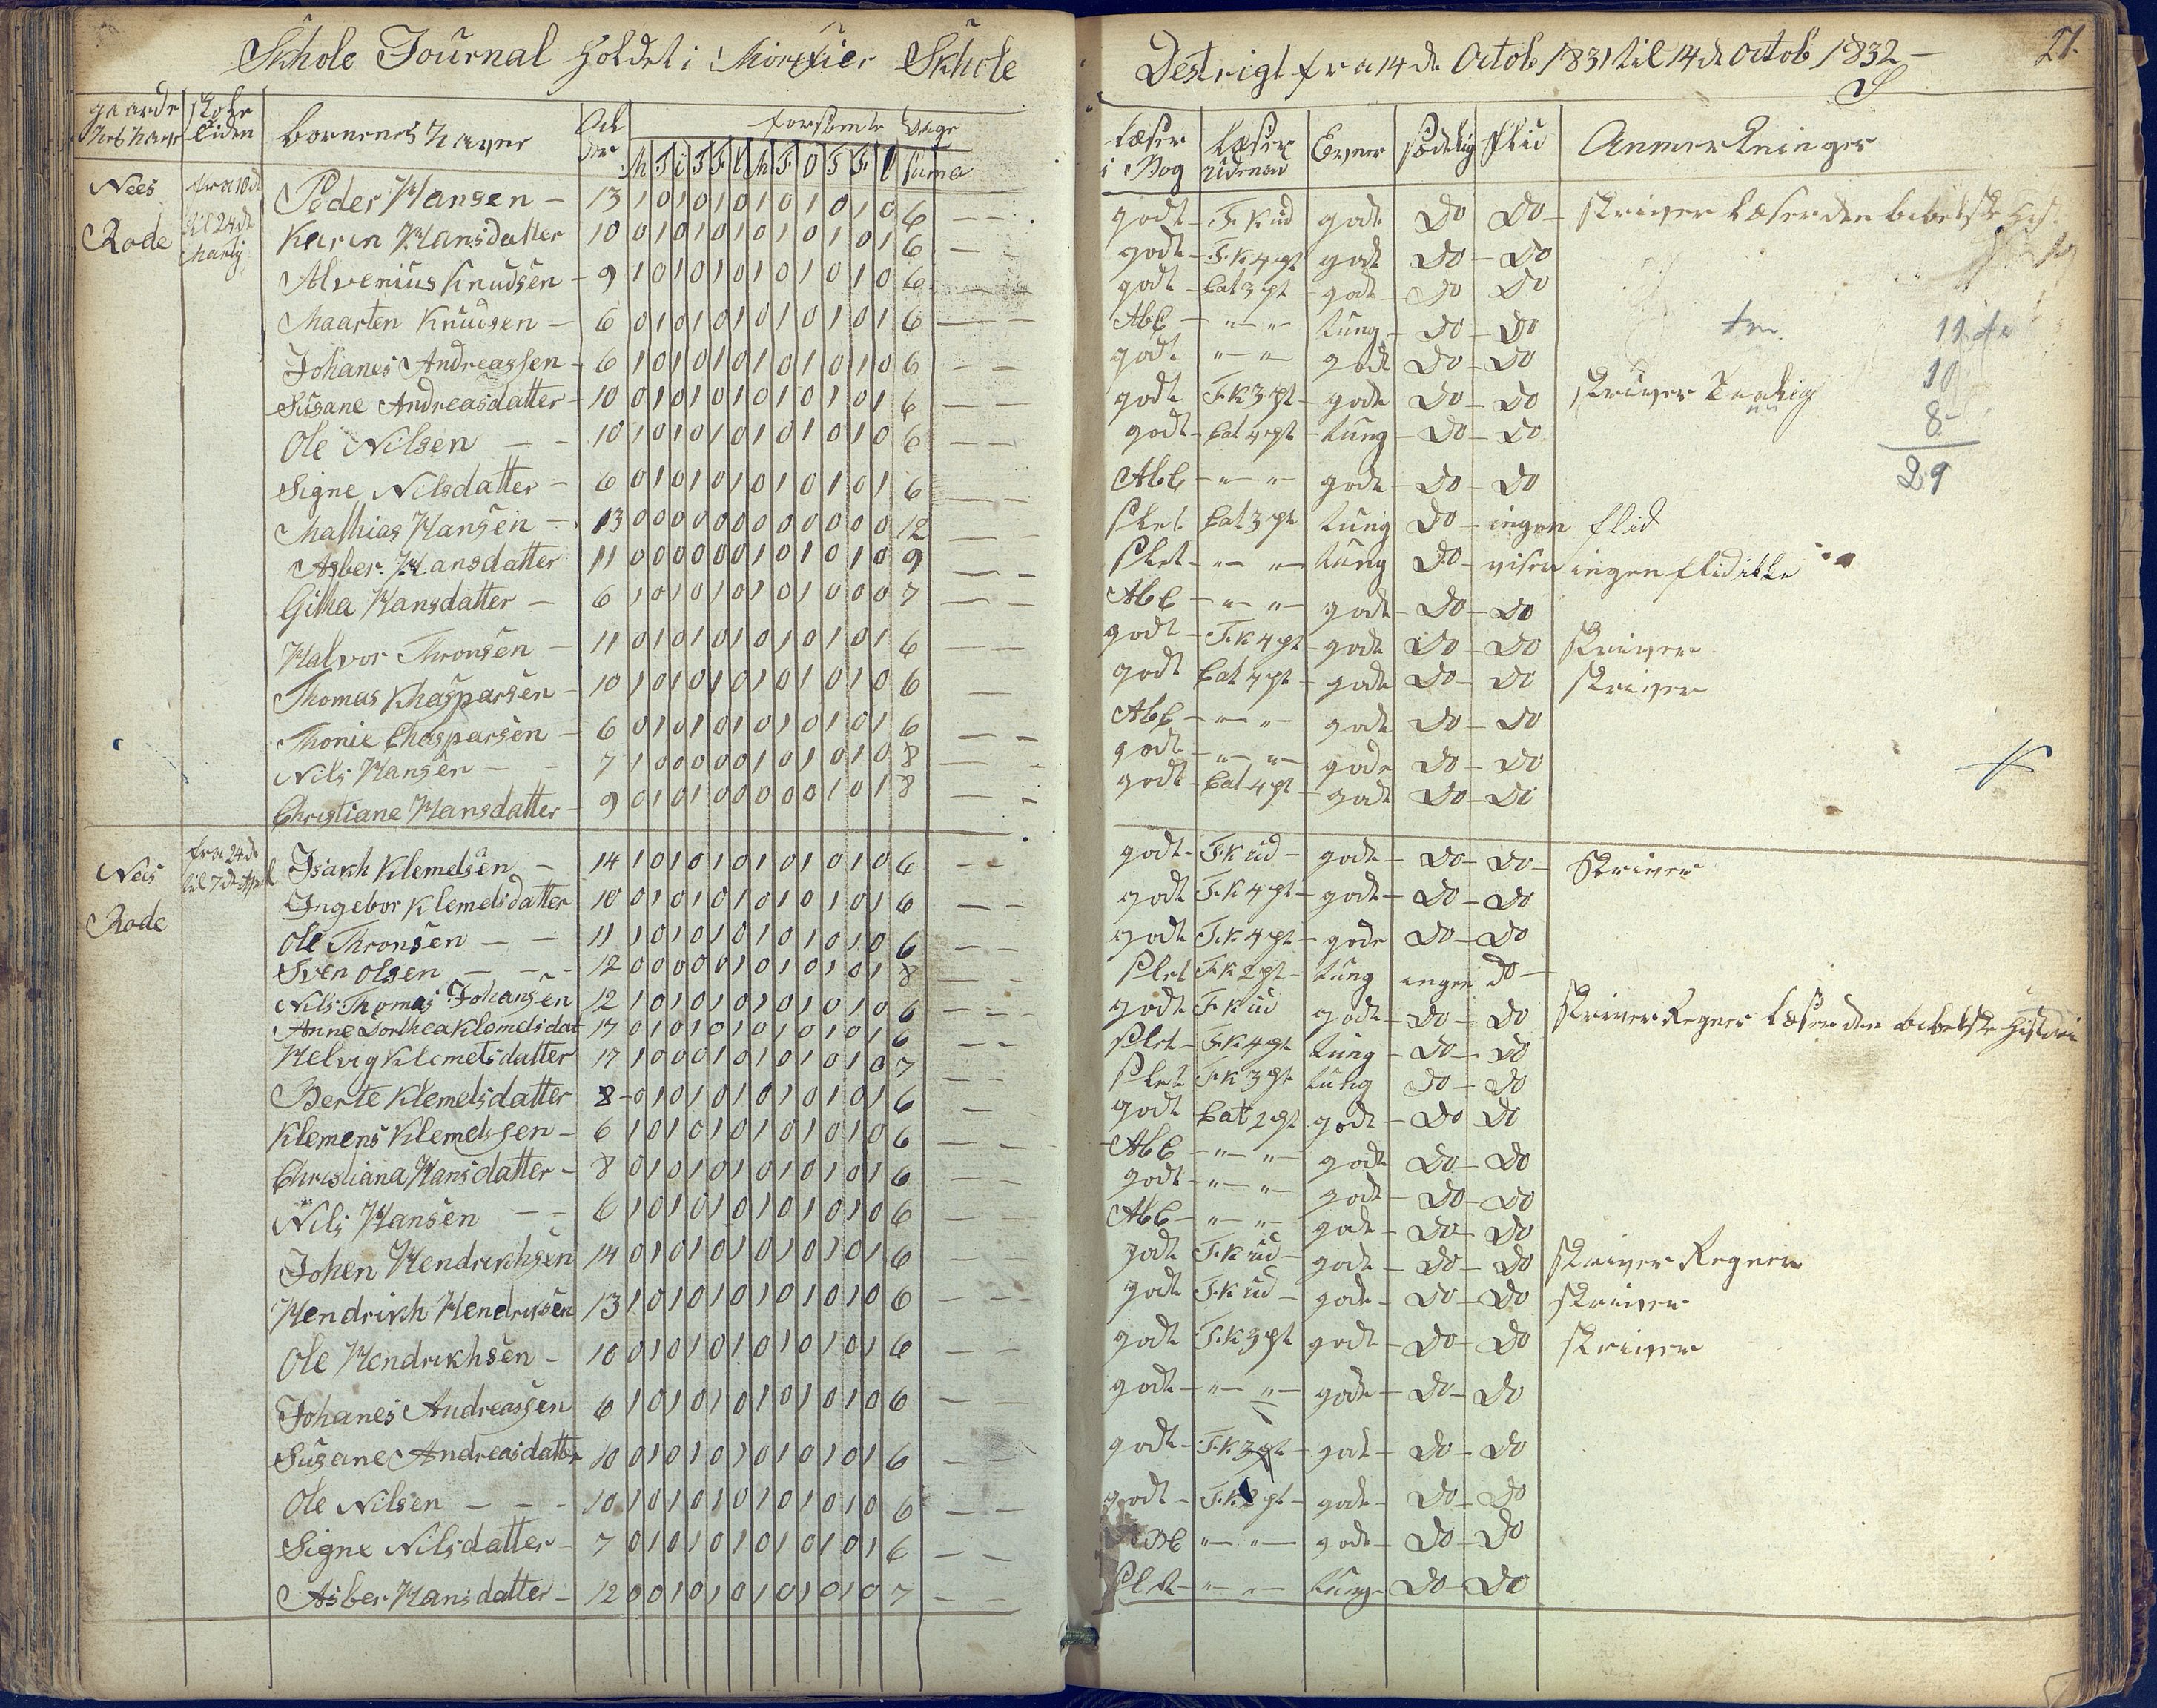 Skhole Journal holdet i Skhole
Destrigt fra 14de Octob 1831 til 14de Octob 1832 21.
gaarde skole
tiden
bornenes Navner
forsømte Dage
M T O T F L M T O T F L suma
læser i Bog læser udenad Evner sædelig flid Anmerkninger
Nees fra 10de Peder Hansen – 13 1 0 1 0 1 0 1 0 1 0 1 0 6 godt F.K ud gode Do Do skriver læser den bibelske Hist.
Rode til 24de Karin Hansdatter 10 0 1 0 1 0 1 0 1 0 1 0 1 6 godt F.K 4 pt godt Do Do
Martij Alvenius Knudsen 9 1 0 1 0 1 0 1 0 1 0 1 0 6 godt Cat 3 pt gode Do Do
Maarten Knudsen 6 0 1 0 1 0 1 0 1 0 1 0 1 6 AbC " " tung Do Do
Johanes Andreassen 6 1 0 1 0 1 0 1 0 1 0 1 0 6 godt " " gode Do Do
Susane Andreasdatter 10 0 1 0 1 0 1 0 1 0 1 0 1 6 godt F.K 3 pt gode Do Do skriver
Ole Nilsen 10 1 0 1 0 1 0 1 0 1 0 1 0 6 godt Cat 4 pt tung Do Do
Signe Nilsdatter 6 0 1 0 1 0 1 0 1 0 1 0 1 6 AbC " " gode Do Do
Mathias Hansen 13 0 0 0 0 0 0 0 0 0 0 0 0 12 slet Cat 3 pt tung Do ingen flid
Asber Hansdatter 11 0 0 0 0 0 0 1 0 1 0 1 0 9 slet " " tung Do viser ingen flid
Githa Hansdatter 6 1 0 1 0 1 0 1 0 1 0 0 0 7 AbC " " gode Do Do
Halvor Thronsen 11 0 1 0 1 0 1 0 1 0 1 0 1 6 godt F.K 4 pt gode Do Do skriver
Thomas Khasparsen 10 1 0 1 0 1 0 1 0 1 0 1 0 6 godt Cat 4 pt gode Do Do skriver
Thonie Chasparsen 6 0 1 0 1 0 1 0 1 0 1 0 1 6 AbC " " gode Do Do
Nils Hansen 7 1 0 0 0 0 0 1 0 1 0 1 0 8 godt " " gode Do Do
Christiane Hansdatter 9 0 1 0 1 0 0 0 0 0 1 0 1 8 godt Cat 4 pt godt Do Do
10
8
29
Nees fra 24de Isakh Klemetsen 14 1 0 1 0 1 0 1 0 1 0 1 0 6 godt F.K ud godt Do Do Skriver
Rode til 7de April Ingebor Klemetsdatter 10 0 1 0 1 0 1 0 1 0 1 0 1 6 godt F.K 4 pt godt Do Do
Ole Thronsen 11 1 0 1 0 1 0 1 0 1 0 1 0 6 godt F.K 4 pt gode Do Do
Sven Olsen 12 0 0 0 0 0 1 0 1 0 1 0 1 8 slet F.K 2 pt tung ingen do
Nils Thomas Johansen 12 1 0 1 0 1 0 1 0 1 0 1 0 6 godt F.K ud gode Do Do skriver Regner læser den bibelske Histori
Anne Dorthea Klemetsdat 17 0 1 0 1 0 1 0 1 0 1 0 1 6 slet F.K 4 pt tung Do Do
Helvig Klemetsdatter 17 1 0 0 0 1 0 1 0 1 0 1 0 7 slet F.K 3 pt tung Do Do
Berte Klemetsdatter 8 0 1 0 1 0 1 0 1 0 1 0 1 6 godt Cat 2 pt godt Do Do
Klemens Klemetsen 6 1 0 1 0 1 0 1 0 1 0 1 0 6 AbC " " gode Do Do
Christiana Hansdatter 8 0 1 0 1 0 1 0 1 0 1 0 1 6 godt " " godt Do Do
Nils Hansen 6 1 0 1 0 1 0 1 0 1 0 1 0 6 AbC " " gode Do Do
Johen Hendrikhsen 14 0 1 0 1 0 1 0 1 0 1 0 1 6 godt F.K ud gode Do Do skriver Regner
Hendrikh Hendriksen 13 1 0 1 0 1 0 1 0 1 0 1 0 6 godt F.K ud gode Do Do skriver
Ole Hendrikhsen 10 0 1 0 1 0 1 0 1 0 1 0 1 6 godt F.K 3 pt godt Do Do skriver
Johanes Andreassen 6 1 0 1 0 1 0 1 0 1 0 1 0 6 godt " " gode Do Do
Susane Andreasdatter 10 0 1 0 1 0 1 0 1 0 1 0 1 6 godt F.K 3 pt godt Do Do
Ole Nilsen 10 1 0 1 0 1 0 1 0 1 0 1 0 6 godt F.K pt gode Do Do
Signe Nilsdatter 7 0 1 0 1 0 1 0 1 0 1 0 1 6 " " gode Do Do
Asber Hansdatter 12 0 0 1 0 1 0 1 0 1 0 1 0 7 slet " " tung Do Do